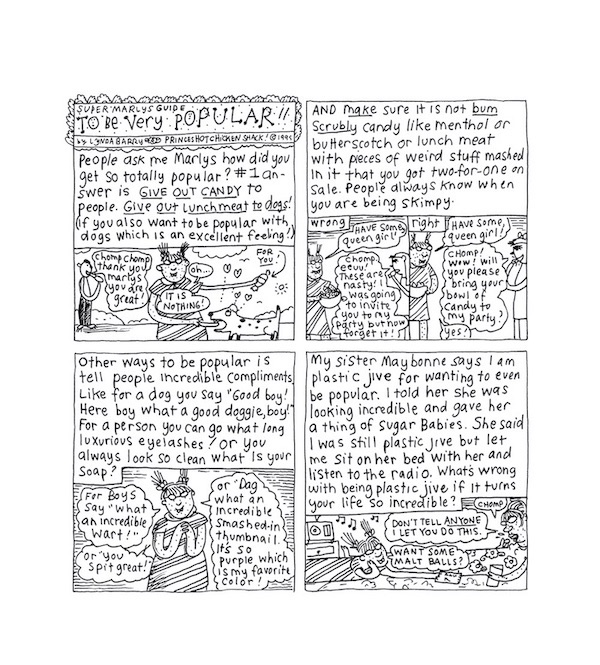 SUPER MARLYS GUIDE
TO BE Very POPULAR!!
by LYNDA BARRY PRINCESHOTCHICKENSHACK! ©1995
People ask me Marlys how did you
get so totally popular? #1 an-
swer is GIVE OUT CANDY to
people. Give out lunchmeat to dogs!
(if you also want to be popular with
dogs which is an excellent feeling!)
Chomp Chomp
thank you
marlys
you are
great!
Oh...
IT IS
NOTHING!
FOR
YOU!
AND make sure it is not bum
scrubly candy like menthol or
butterscotch or lunch meat
with pieces of weird stuff mashed
in it that you got two-for-one on
sale. People always know when
you are being skimpy.
wrong
HAVE SOME,
queen girl!
Chomp
eeuu!
These are
nasty! I
was going
to invite
you to my
party but now
forget it!
right
HAVE SOME,
queen girl!
CHOMP!
wow! will
you please
bring your
bowl of
candy to
my party?
yes!
Other ways to be popular is
tell people incredible compliments.
Like for a dog you say "Good boy!
Here boy what a good doggie, boy!"
For a person you can go what long
luxurious eyelashes! or you
always look so clean what is your
soap?
For BOYS
say "what
an incredible
wart!"
or "you
spit great!"
or "Dag
what an
incredible
smashed-in
thumbnail.
It's so
purple which
is my favorite
color!
My sister Maybonne says I am
plastic jive for wanting to even
be popular. I told her she was
looking incredible and gave her
a thing of sugar Babies. She said
I was still plastic jive but let
me sit on her bed with her and
listen to the radio. What's wrong
with being plastic jive if it turns
your life so incredible?
CHOMP
DON'T TELL ANYONE
I LET YOU DO THIS.
WANT SOME
MALT BALLS?